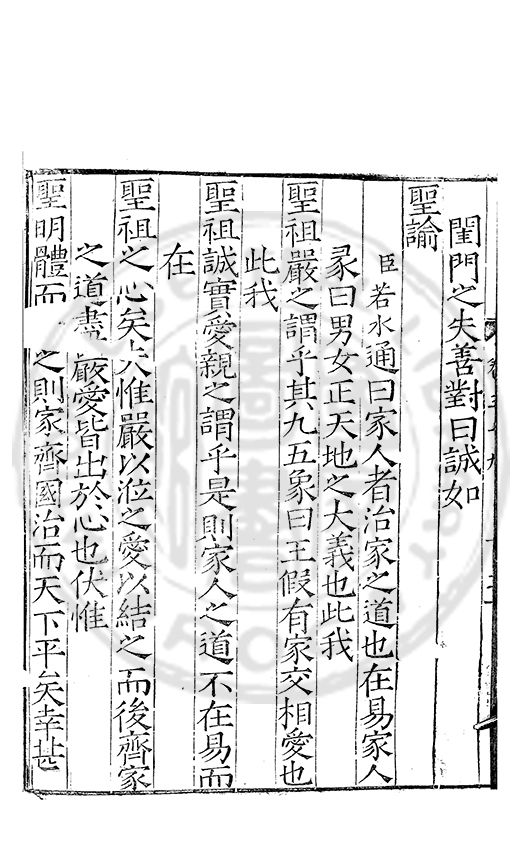 閨門之失善對曰誠如
聖諭
臣若水通曰家人者治家之道也在易家人
彖曰男女正天地之大義也此我
聖祖嚴之謂乎其九五象曰王假有家交相愛也
此我
聖祖誠實愛親之謂乎是則家人之道不在易而
在
聖祖之心矣夫惟嚴以涖之愛以結之而後齊家
之道盡嚴愛皆出於心也伏惟
聖明體而 之則家齊國治而天下平矣幸甚